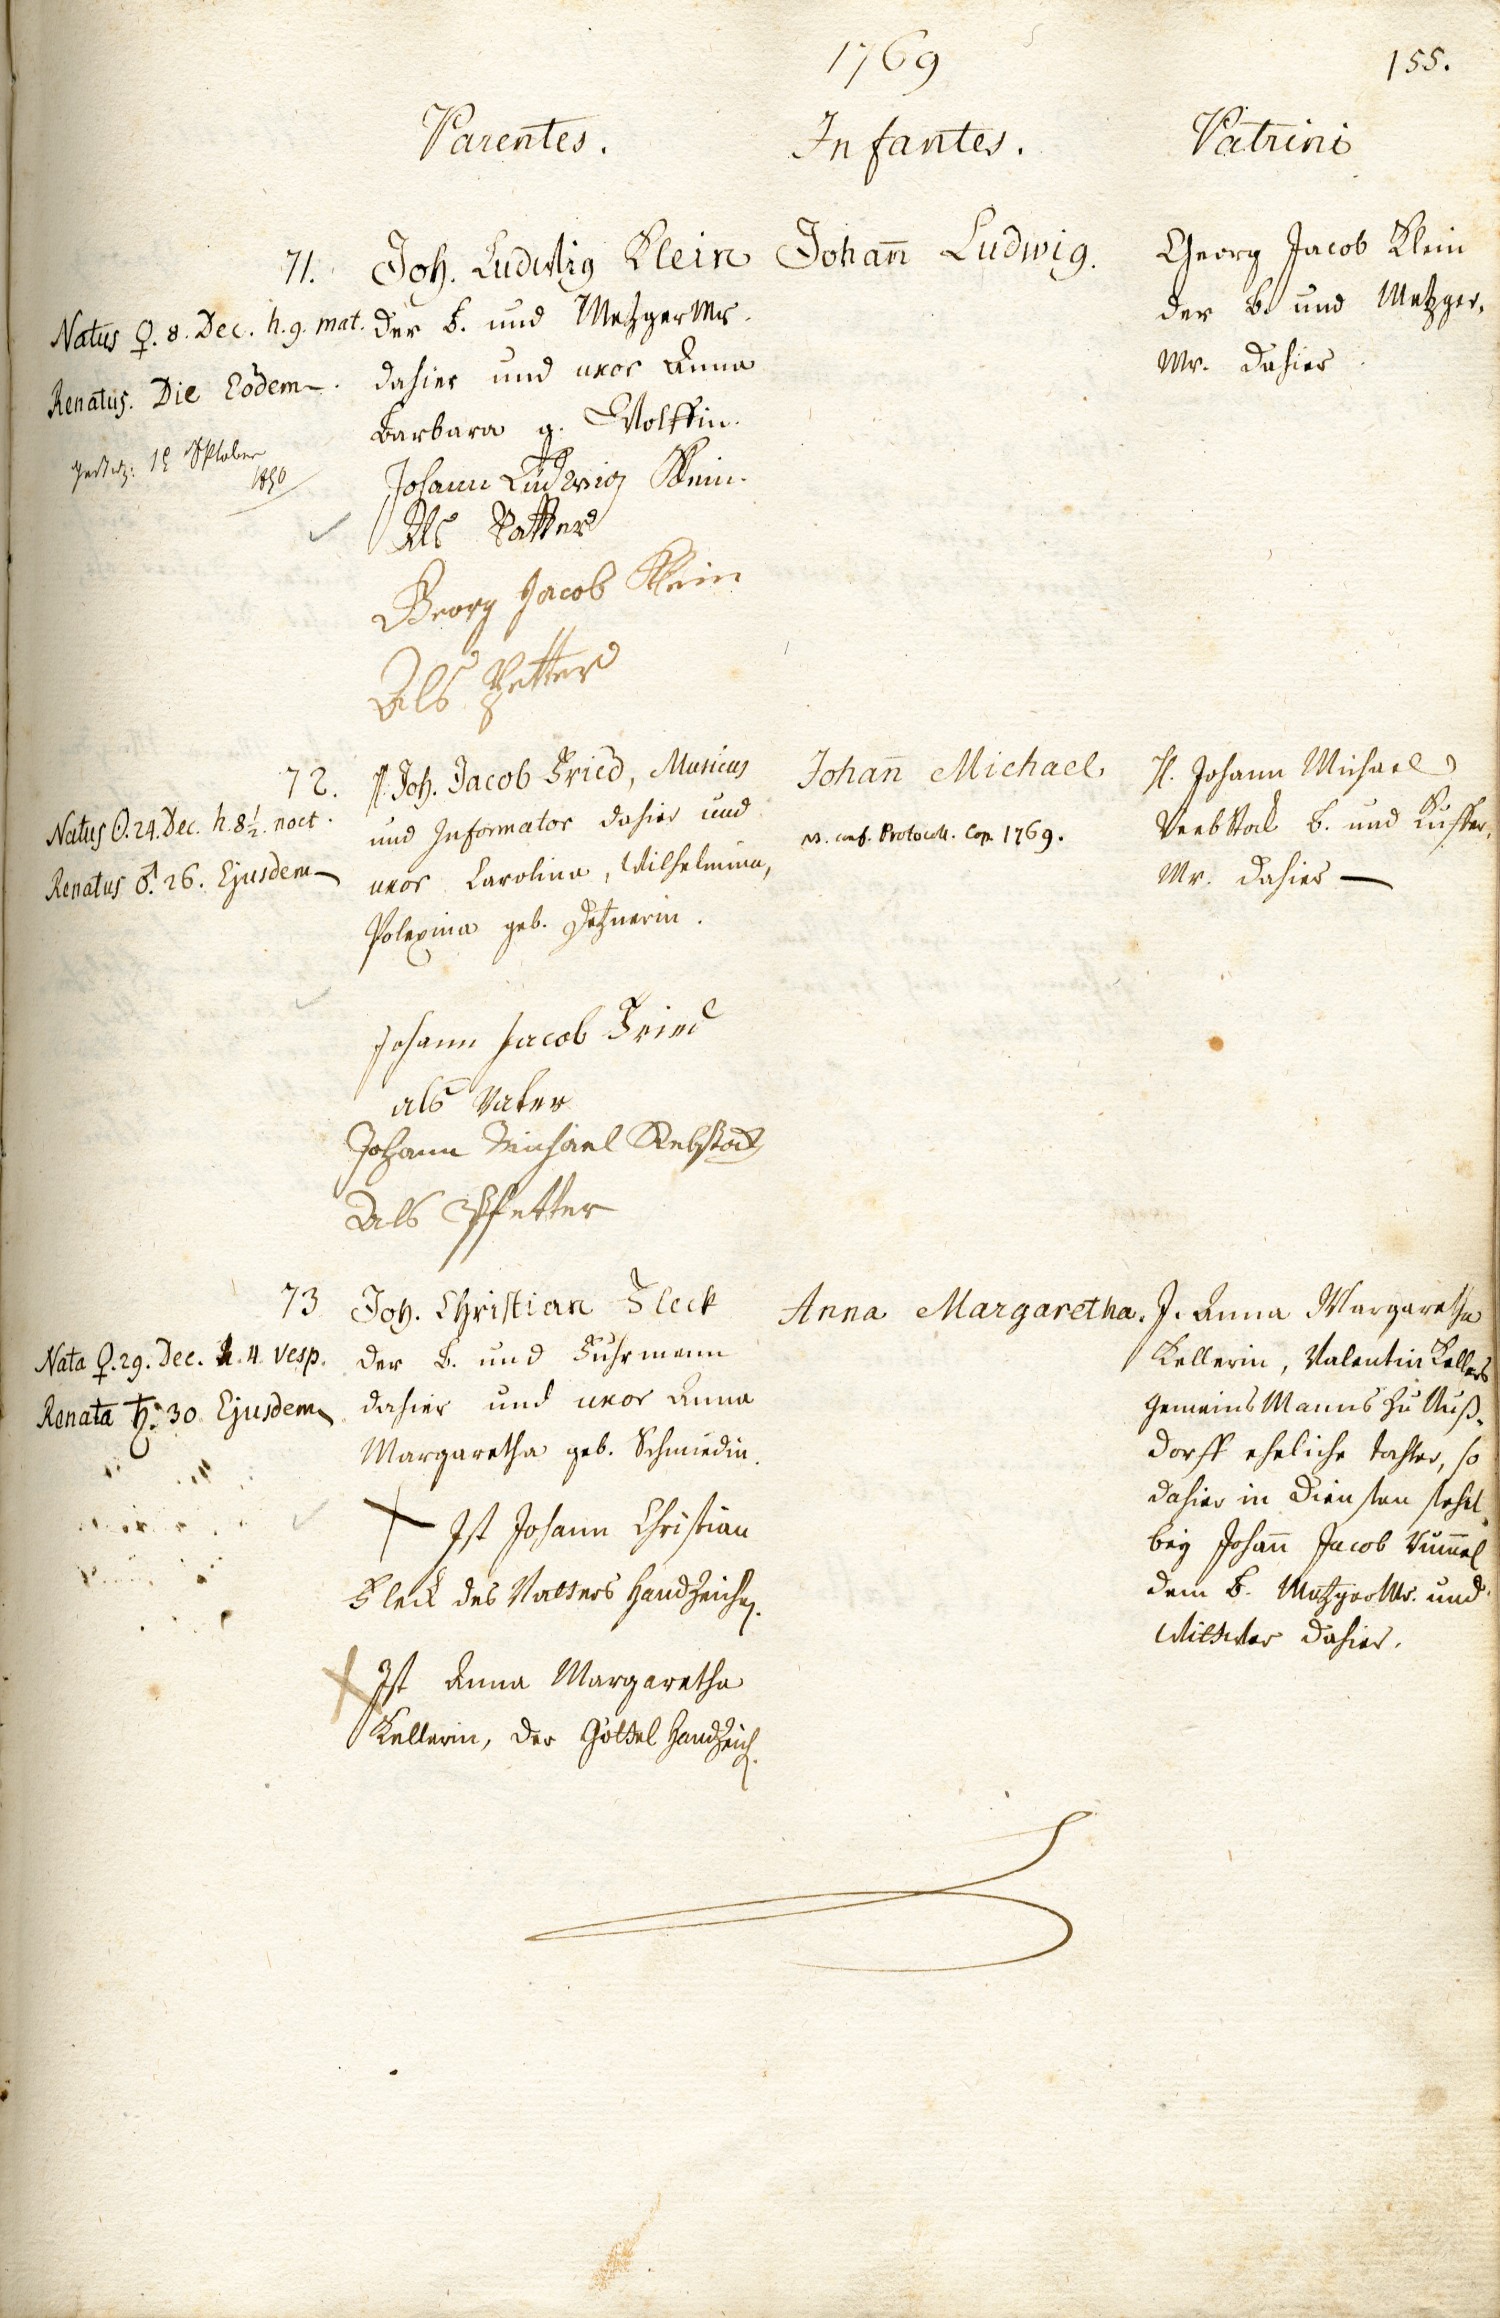 1769
155.
Parentes. Infantes. Patrini
71. Joh. Ludwig Klein Johan̄ Ludwig. Georg Jacob Klein
Natus ♀. 8. Dec. h. 9. mat. der B. und Metzger Mr. der B. und Metzger,
Renatus. Die Eodem dahier und uxor Anna Mr. dahier
Barbara g. Wolffin.
Oktober
1850
Johann Ludwig Klein.
Als Vatter
Georg Jacob Klein
Als Petter
72. H. Joh. Jacob Fried, Musicus Johan̄ Michael H. Johann Michael
Natus ☉. 24. Dec. h. 8½. noct. und Informator dahier und NB. conf. Protocoll. Cop. 1769. Reebstock B. und Kuffer,
Renatus ♂. 26. Ejusdem uxor Carolina, Wilhelmina, Mr. dahier
Polexina geb. Detznerin.
Johann Jacob Fried
als Vater
Johann Michael Rebstock
Als Pfetter
73 Joh. Christian Fleck Anna Margaretha. J. Anna Margaretha
Nata ♀. 29. Dec. h. 4. vesp. der B. und Fuhrmann Kellerin, Valentin Kellers
Renata ♄. 30 Ejusdem dahier und uxor Anna gemeins Manns zu Nuß-
Margaretha geb. Schmiedin. dorff eheliche tochter, so
dahier in Diensten stehet
Ist Johann Christian bey Johan̄ Jacob Kum̄el
Fleck des Vatters Handzeichen. dem B. Metzger Mr. und
Wittwer dahier.
Ist Anna Margaretha
Kellerin, der Göttel Handzeich.